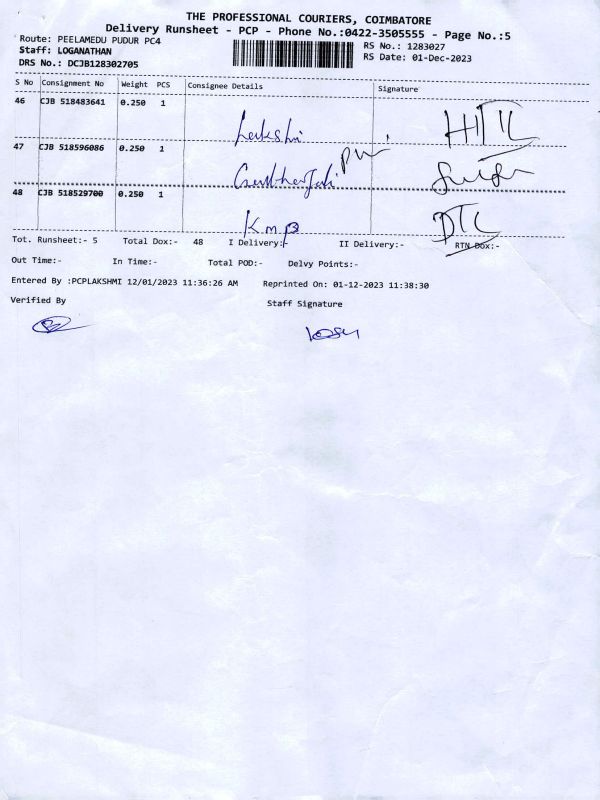 THE PROFESSIONAL COURIERS, COIMBATORE
Delivery Runsheet - PCP - Phone No.:0422-3505555 - Page No.:5
Route: PEELAMEDU PUDUR PC4
RS No.: 1283027
Staff: LOGANATHAN
RS Date: 01-Dec-2023
DRS No.: DCJB128302705
S No Consignment No Weight PCS Consignee Details Signature
46 CJB 518483641 0.250 1
47 CJB 518596086 0.250 1
48 CJB 518529700 0.250 1
K.M.B DTC
Tot. Runsheet:- 5 Total Dox:- 48 I Delivery:- II Delivery:- RTN Dox:-
Out Time:- In Time:- Total POD:- Delvy Points:-
Entered By :PCPLAKSHMI 12/01/2023 11:36:26 AM Reprinted On: 01-12-2023 11:38:30
Verified By Staff Signature